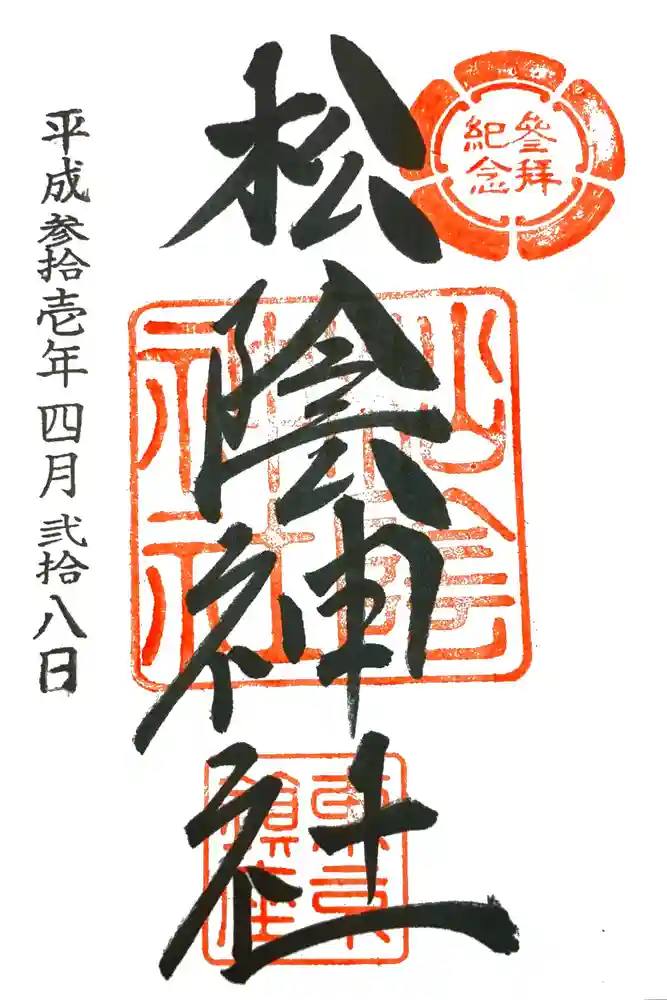 參拜
紀念
松陰神社
松陰
神社
東京
鎮座
平成参拾壱年四月弐拾八日